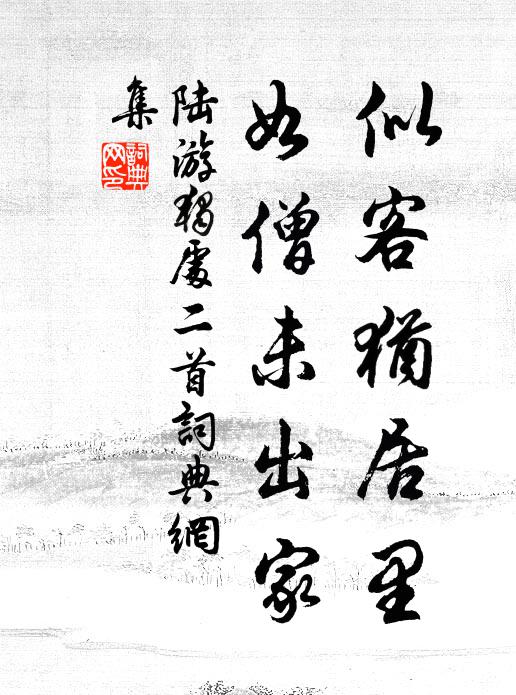 似客猶居里
如僧未出家
陸游獨處二首詞典網
集
詞典
网印